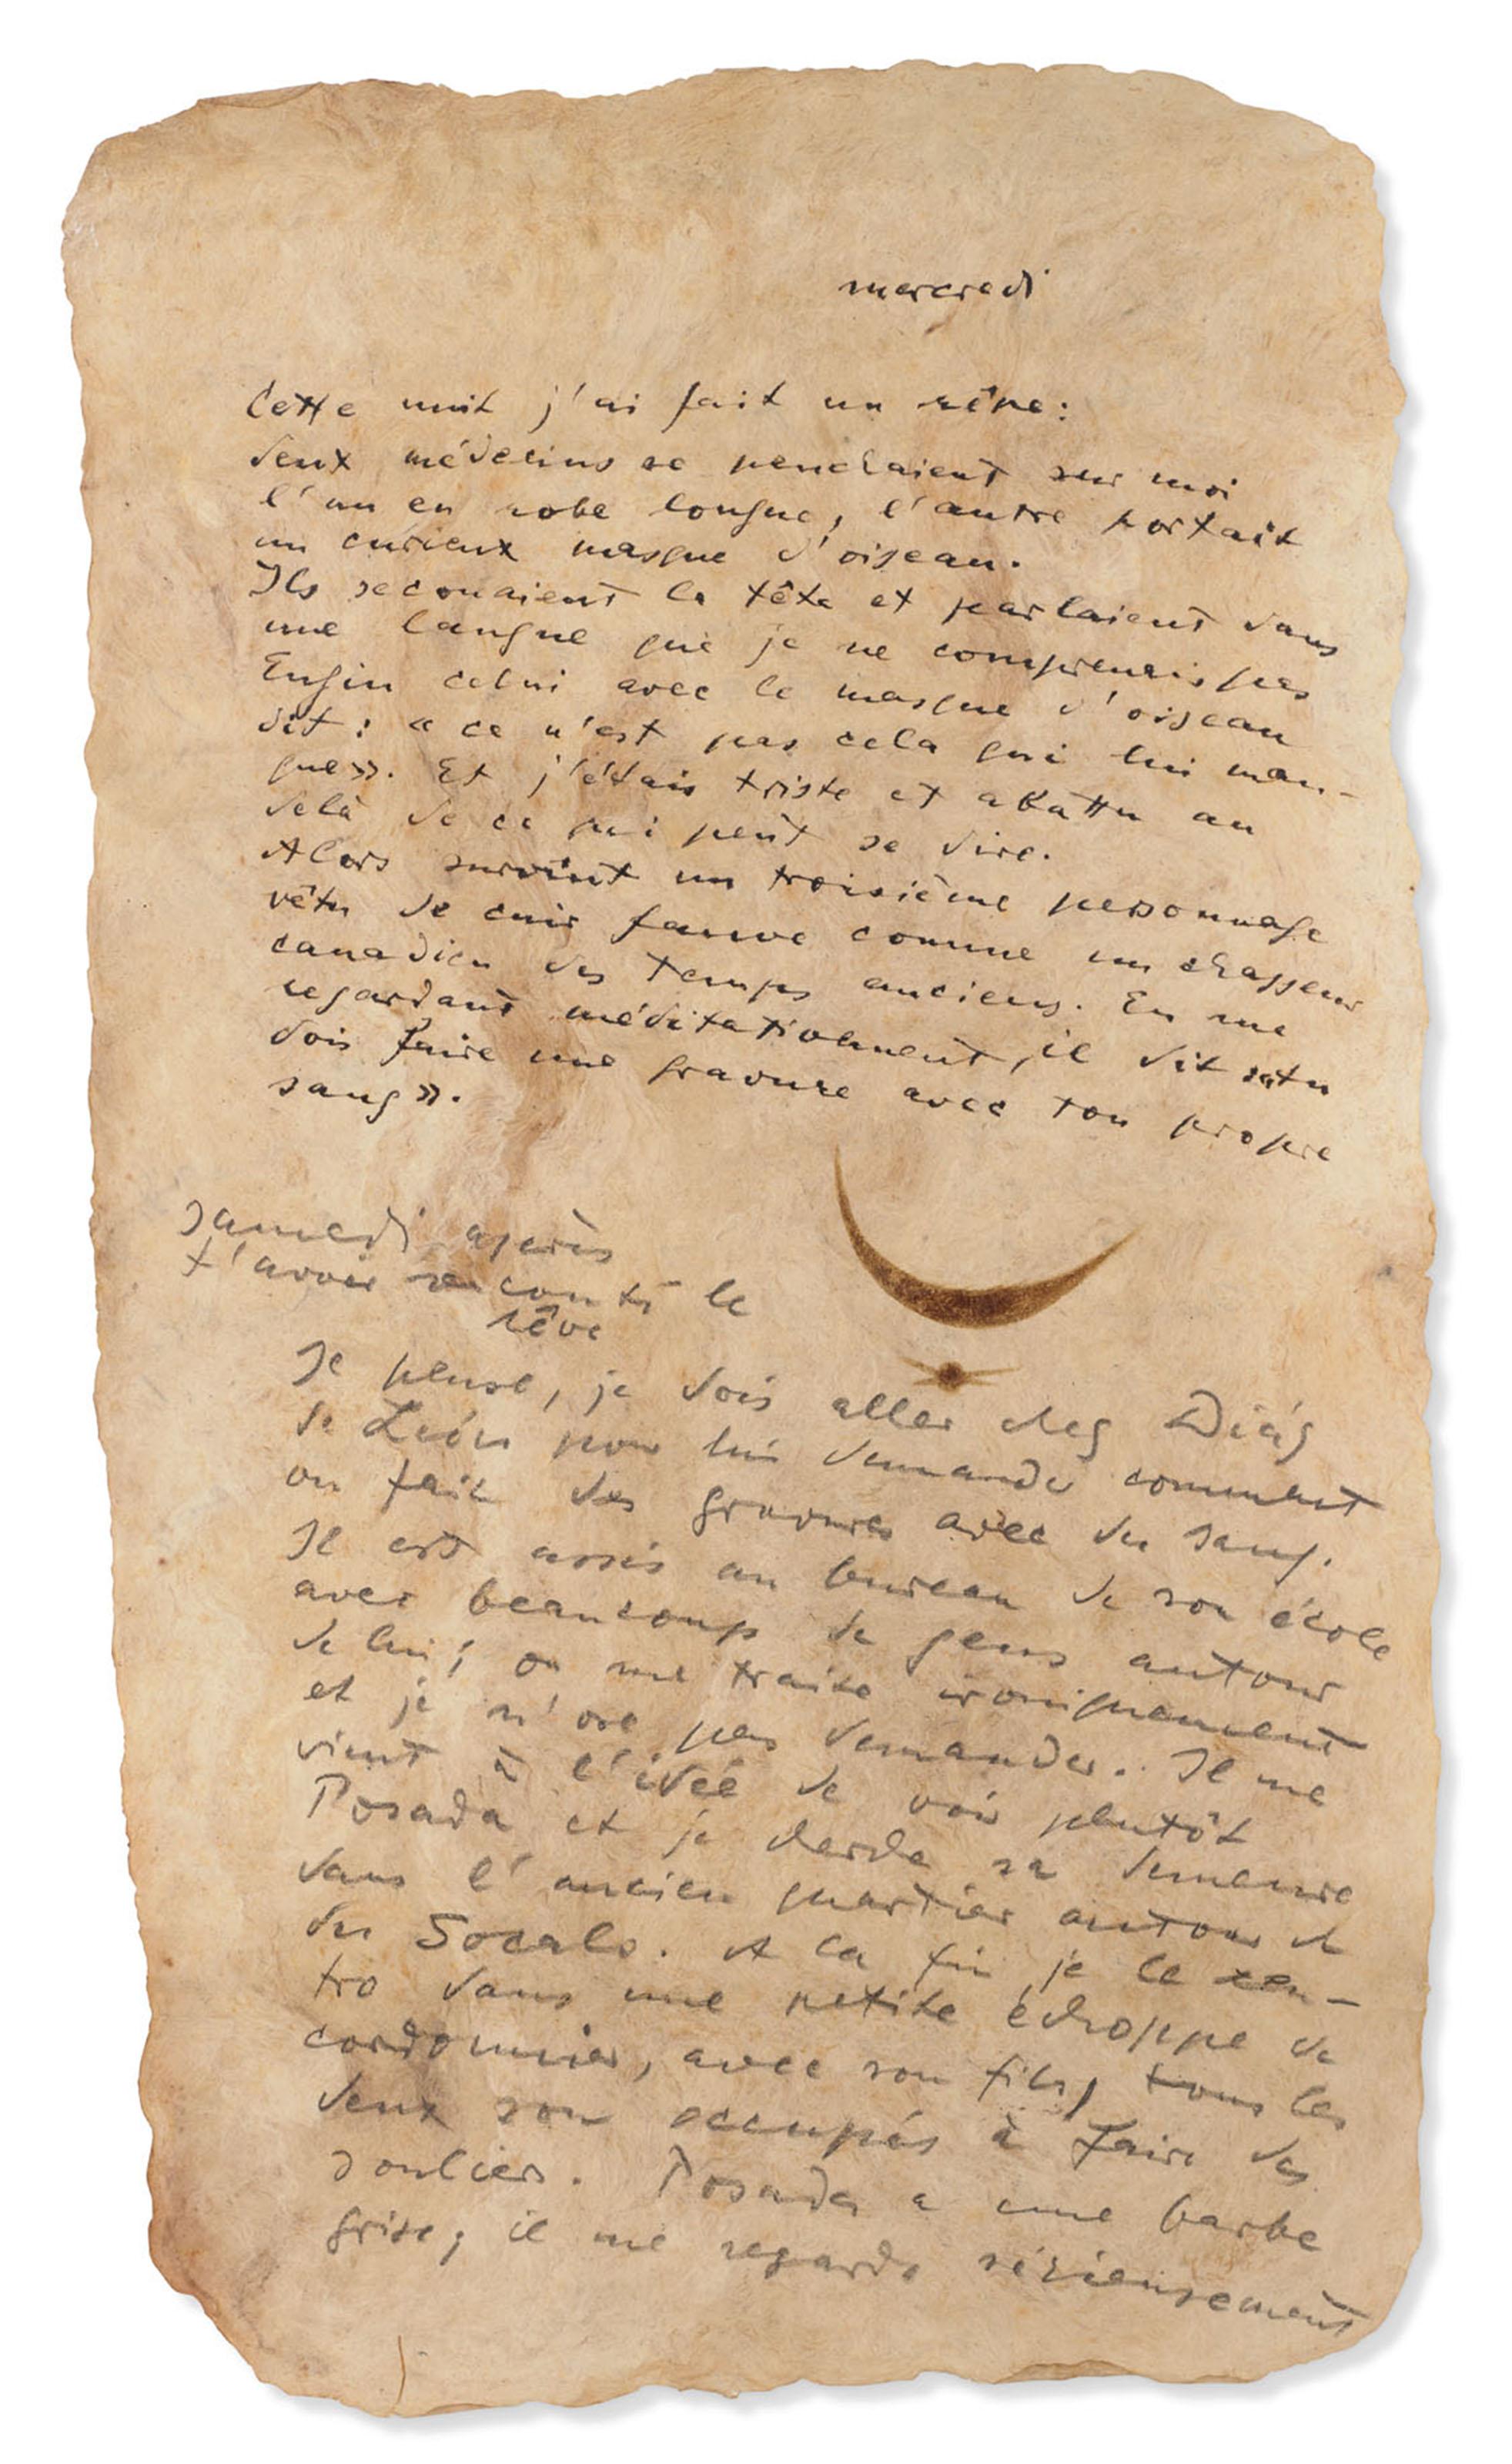 mercredi
Cette nuit j'ai fait un rêve:
deux médecins se penchaient sur moi
l'un en robe longue, l'autre portait
un curieux masque d'oiseau.
Ils secouaient la tête et parlaient dans
une langue que je ne comprenais pas
Enfin celui avec le masque d'oiseau
dit: « ce n'est pas cela qui lui man-
que». Et j'étais triste et abattu au
delà de ce qui peut se dire.
Alors survint un troisième personnage
vêtu de cuir fauve comme un chasseur
canadien des temps anciens. En me
regardant méditativement, il dit «tu
dois faire une gravure avec ton propre
sang».
Samedi après
t'avoir raconté le
rêve
Je pense, je dois aller chez Diáz
de León pour lui demander comment
on fait des gravures avec du sang.
Il est assis au bureau de son école
avec beaucoup de gens autour
de lui; on me traite ironiquement
et je n'ose pas demander. Il me
vient à l'idée de voir plutôt
Posada et je cherche sa demeure
dans l'ancien quartier autour de
du Socalo. A la fin je le ren-
tro dans une petite échoppe de
cordonnier, avec son fils, tous les
deux son occupés à faire des
souliers. Posada a une barbe
grise; il me regarde sérieusement